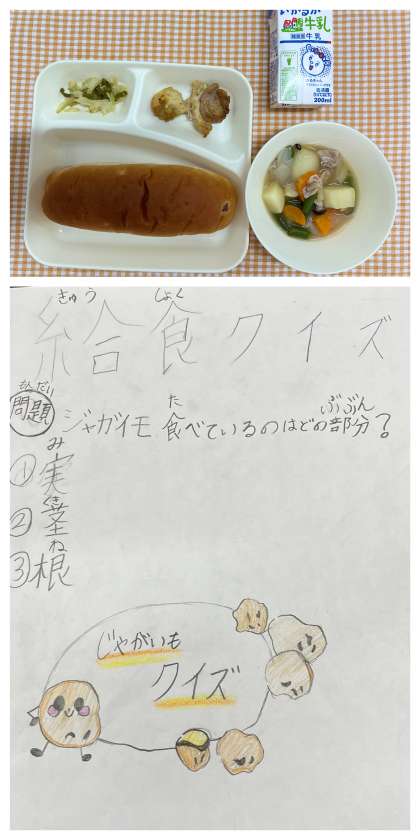 牛乳
200ml
きゅう しょく
給食クイズ
もんだい
問題
た
ぶぶん
ジャガイモ 食べているのはどの部分?
み
①実
くき
②茎
ね
③根
じゃがいも
クイズ